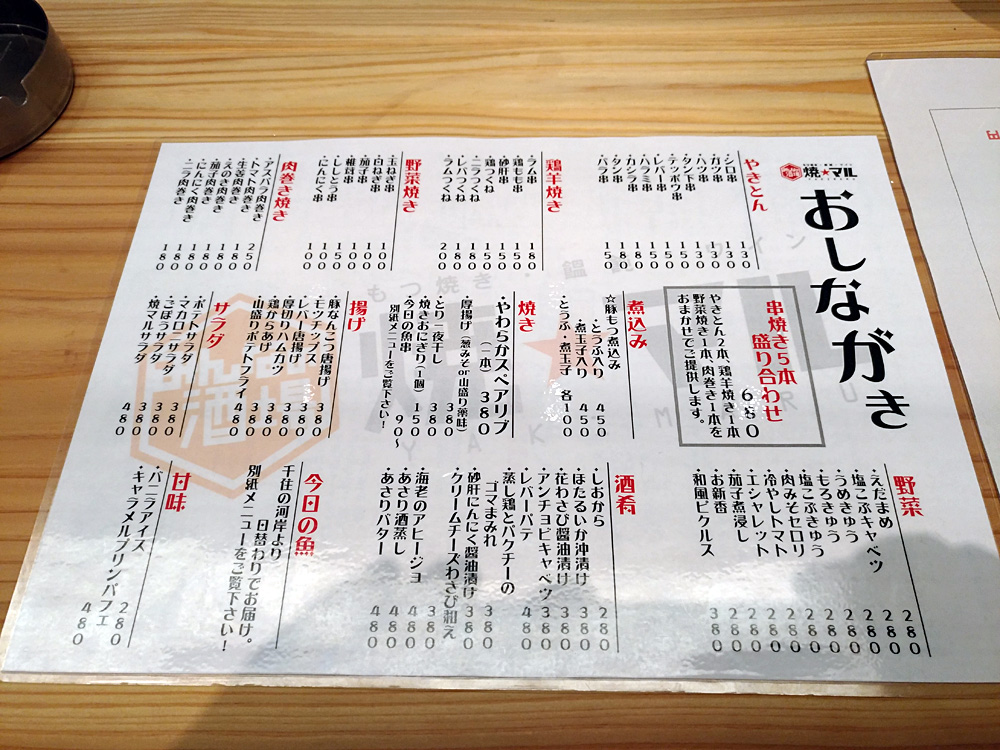 焼★マル
おしながき
やきとん
・シロ串 130
・ガツ串 130
・ハツ串 150
・タンド串 150
・テッポウ串 150
・レバー串 150
・ハラミ串 150
・カシラ串 180
・タン串 180
・バラ串 150
鶏羊焼き
・ラム串 180
・鶏もも串 150
・砂肝串 150
・鶏つくね 150
・ニラつくね 180
・レバつくね 180
・ラムつくね 200
野菜焼き
・玉ねぎ串 100
・白ねぎ串 100
・茄子串 100
・椎茸串 100
・ししとう串 150
・にんにく串 100
肉巻き焼き
・アスパラ肉巻き 250
・トマト肉巻き 180
・生姜肉巻き 180
・えのき肉巻き 180
・茄子肉巻き 180
・にんにく肉巻き 180
・ニラ肉巻き 180
串焼き5本
盛り合わせ
680
やきとん2本、鶏羊焼き1本
野菜焼き1本、肉巻き1本を
おまかせでご提供します。
煮込み
☆豚もつ煮込み 450
・とうふ入り 450
・煮玉子入り 450
・とうふ・煮玉子 各100
焼き
・やわらかスペアリブ
(一本) 380
・厚揚げ(葱みそor山盛り薬味) 380
・とり一夜干し 380
・焼きおにぎり(1個) 150
・今日の魚串 90〜
別紙メニューをご覧下さい！
揚げ
・豚なんこつ唐揚げ 380
・モツチップス 380
・レバー唐揚げ 380
・厚切りハムカツ 380
・鶏からあげ 380
・山盛りポテトフライ 480
サラダ
・ポテトサラダ 380
・マカロニサラダ 380
・ごぼうサラダ 380
・焼マルサラダ 480
野菜
・えだまめ 280
・塩こぶキャベツ 280
・うめきゅう 280
・もろきゅう 280
・塩こぶきゅう 280
・肉みそセロリ 280
・冷やしトマト 280
・エシャレット 280
・茄子煮浸し 280
・お新香 280
・和風ピクルス 380
酒肴
・しおから 280
・ほたるいか沖漬け 380
・花わさび醤油漬け 380
・アンチョビキャベツ 380
・レバーパテ 380
・蒸し鶏とパクチーの
ゴマまみれ 380
・砂肝にんにく醤油漬け 380
・クリームチーズわさび和え 380
・海老のアヒージョ 480
・あさり酒蒸し 480
・あさりバター 480
今日の魚
千住の河岸より
日替わりでお届け。
別紙メニューをご覧下さい！
甘味
・バニラアイス 280
・キャラメルプリンパフェ 480
もつ焼き・鍋
ワイン
YAKIMARU